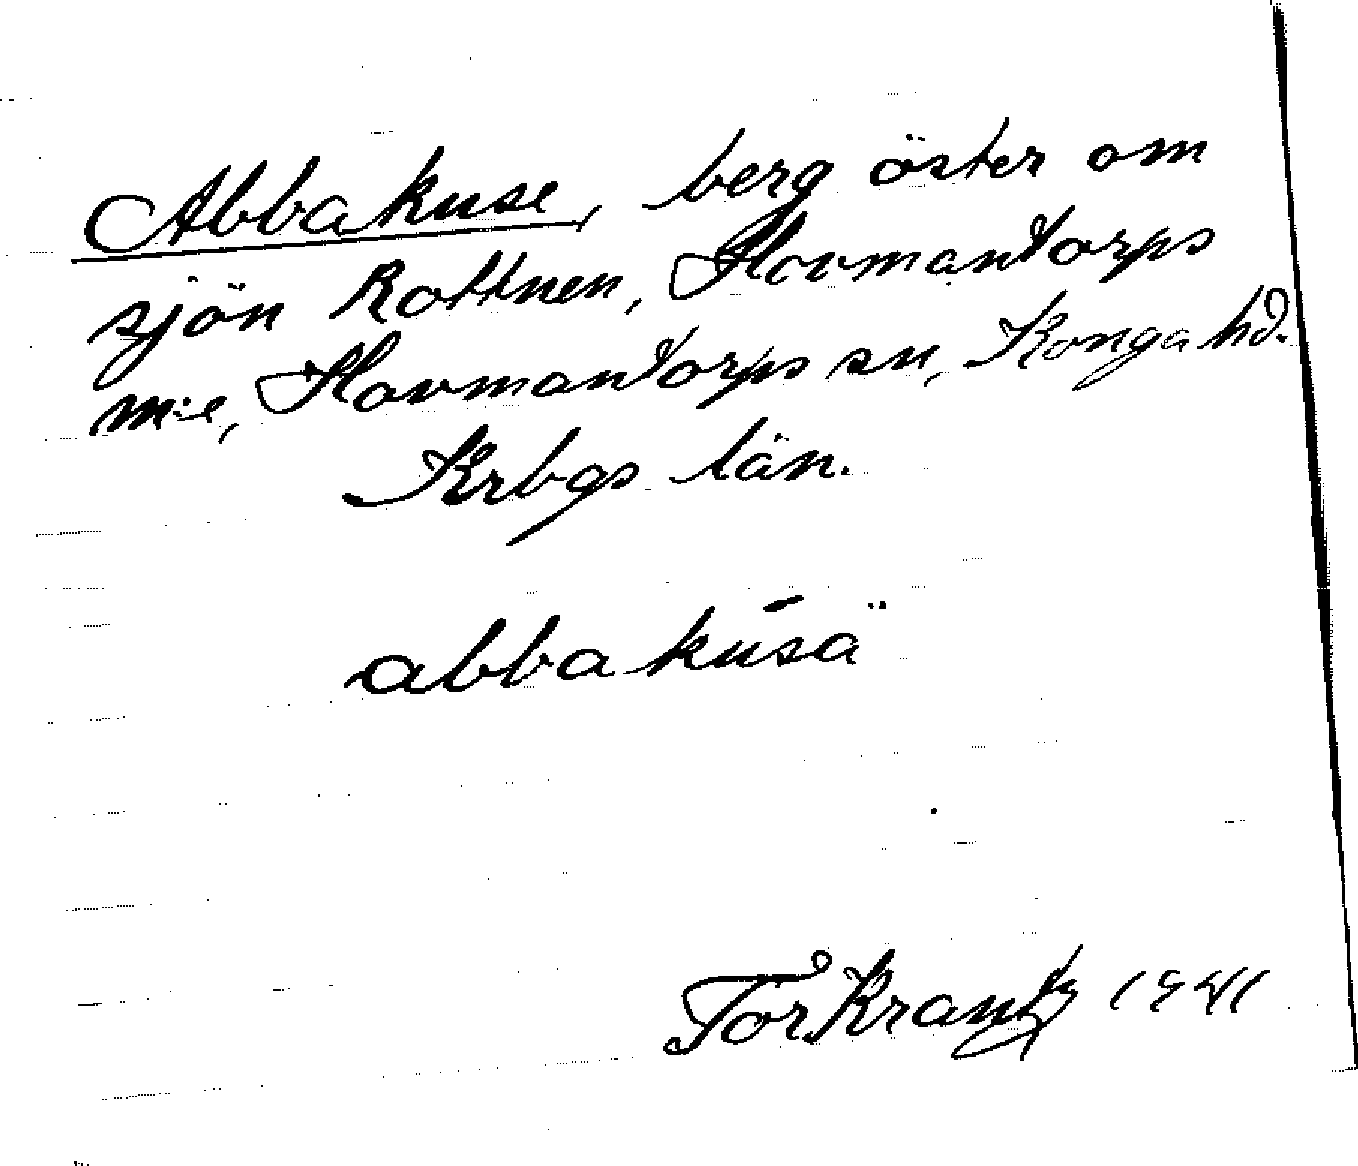 Abbakuse, berg öster om
sjön Rottnen, Hovmantorps
m:e, Hovmantorps sn, Konga hd.
Krbgs län.
abbakúsä
Tor Krantz 1941